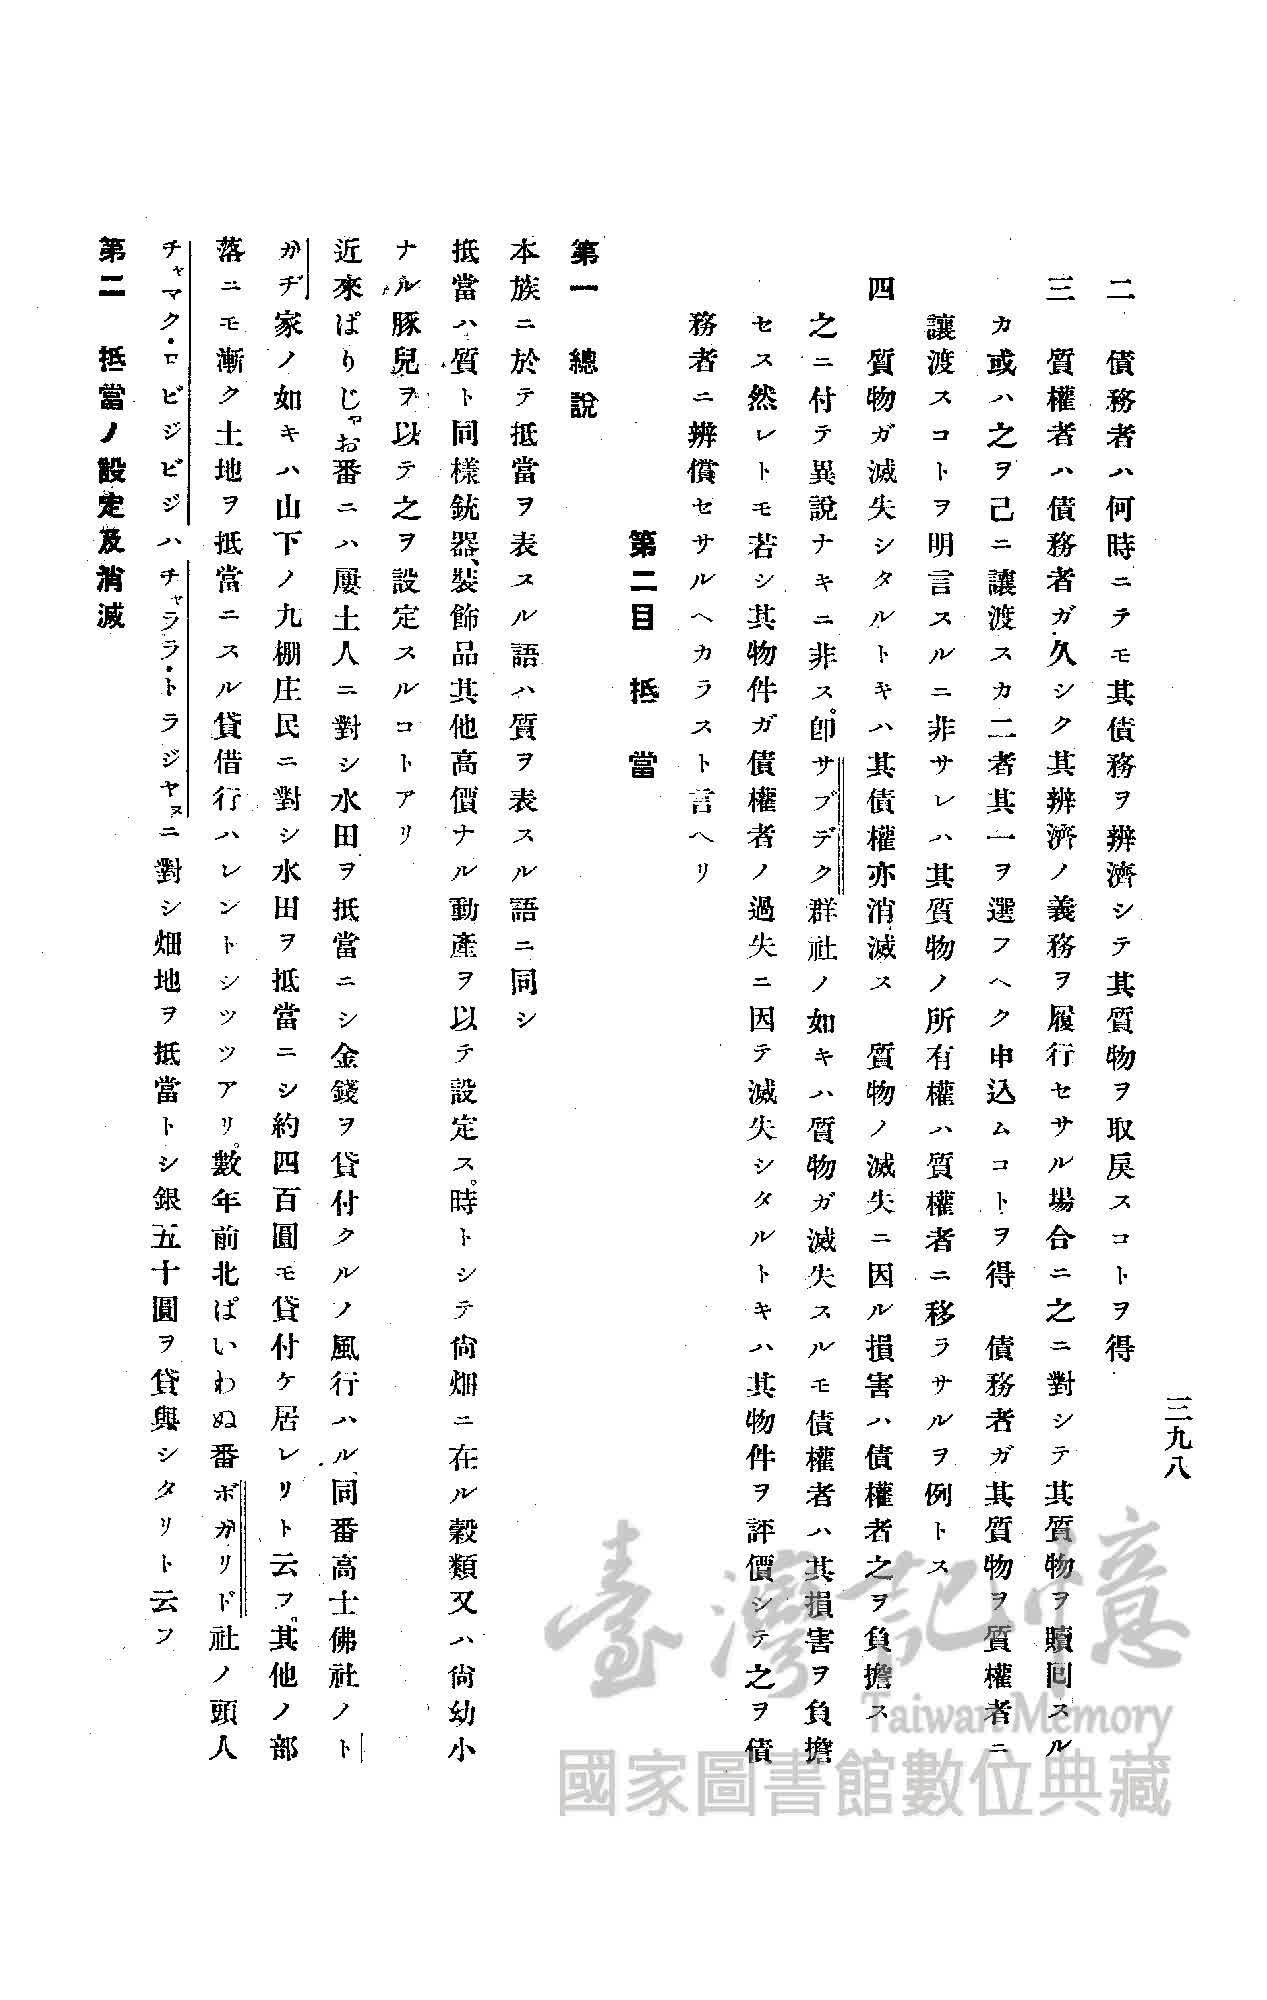 三九八
二　債務者ハ何時ニテモ其債務ヲ辨濟シテ其質物ヲ取戻スコトヲ得
三　質權者ハ債務者ガ久シク其辨濟ノ義務ヲ履行セサル場合ニ之ニ對シテ其質物ヲ贖囘スル
カ或ハ之ヲ己ニ讓渡スカ二者其一ヲ選フヘク申込ムコトヲ得　債務者ガ其質物ヲ質權者ニ
讓渡スコトヲ明言スルニ非サレハ其質物ノ所有權ハ質權者ニ移ラサルヲ例トス
四　質物ガ滅失シタルトキハ其債權亦消滅ス　質物ノ滅失ニ因ル損害ハ債權者之ヲ負擔ス
之ニ付テ異說ナキニ非ス。卽サブデク群社ノ如キハ質物ガ滅失スルモ債權者ハ其損害ヲ負擔
セス然レトモ若シ其物件ガ債權者ノ過失ニ因テ滅失シタルトキハ其物件ヲ評價シテ之ヲ債
務者ニ辨償セサルヘカラスト言ヘリ
第二目　抵　當
第一　總說
本族ニ於テ抵當ヲ表スル語ハ質ヲ表スル語ニ同シ
抵當ハ質ト同樣銃器、裝飾品其他高價ナル動產ヲ以テ設定ス。時トシテ尙畑ニ在ル穀類又ハ尙幼小
ナル豚兒ヲ以テ之ヲ設定スルコトアリ
近來ぱりじゃお番ニハ屢土人ニ對シ水田ヲ抵當ニシ金錢ヲ貸付クルノ風行ハル、同番高士佛社ノト
ガヂ家ノ如キハ山下ノ九棚庄民ニ對シ水田ヲ抵當ニシ約四百圓モ貸付ケ居レリト云フ。其他ノ部
落ニモ漸ク土地ヲ抵當ニスル貸借行ハレントシツツアリ。數年前北ぱいわぬ番ボガリド社ノ頭人
チャマク・ロビジビジハチャララ・トラジヤヌニ對シ畑地ヲ抵當トシ銀五十圓ヲ貸與シタリト云フ
第二　抵當ノ設定及消滅
臺灣記憶
Taiwan Memory
國家圖書館數位典藏